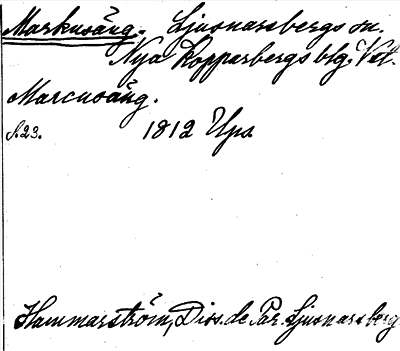 Markusäng. Ljusnarsbergs sn.
Nya Kopparbergs blg. Vstl.
Marcusäng.
S. 23. 1812 Ups.
Hammarström, Diss. de Par. Ljusnarsberg